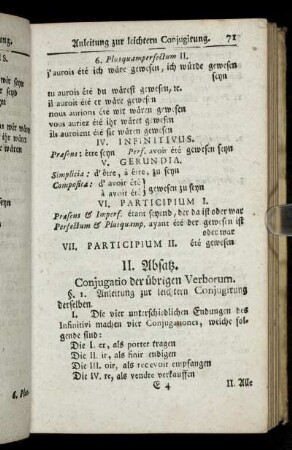 Anleitung zur leichtern Conjugirung. 71
6. Plusquamperfectum II.
j'aurois été ich wäre gewesen, ich würde gewesen
seyn
tu aurois été du wärest gewesen, ꝛc.
il auroit été er wäre gewesen
nous aurions été wir wären gewesen
vous auriez été ihr wäret gewesen
ils auroient été sie wären gewesen
IV. INFINITIVUS.
Præsens: être seyn Perf. avoir été gewesen seyn
V. GERUNDIA.
Simplicia: d'être, à être, zu seyn
Composita: d'avoir été
à avoir été } gewesen zu seyn
VI. PARTICIPIUM I.
Præsens & Imperf. étant seyend, der da ist oder war
Perfectum & Plusquamp. ayant été der gewesen ist
oder war
VII. PARTICIPIUM II. été gewesen
II. Absatz.
Conjugatio der übrigen Verborum.
§. 1. Anleitung zur leichtern Conjugirung
derselben.
I. Die vier unterschiedlichen Endungen des
Infinitivi machen vier Conjugationes, welche fol-
gende sind:
Die I. er, als porter tragen
Die II. ir, als finir endigen
Die III. oir, als recevoir empfangen
Die IV. re, als vendre verkauffen
E 4 II. Alle